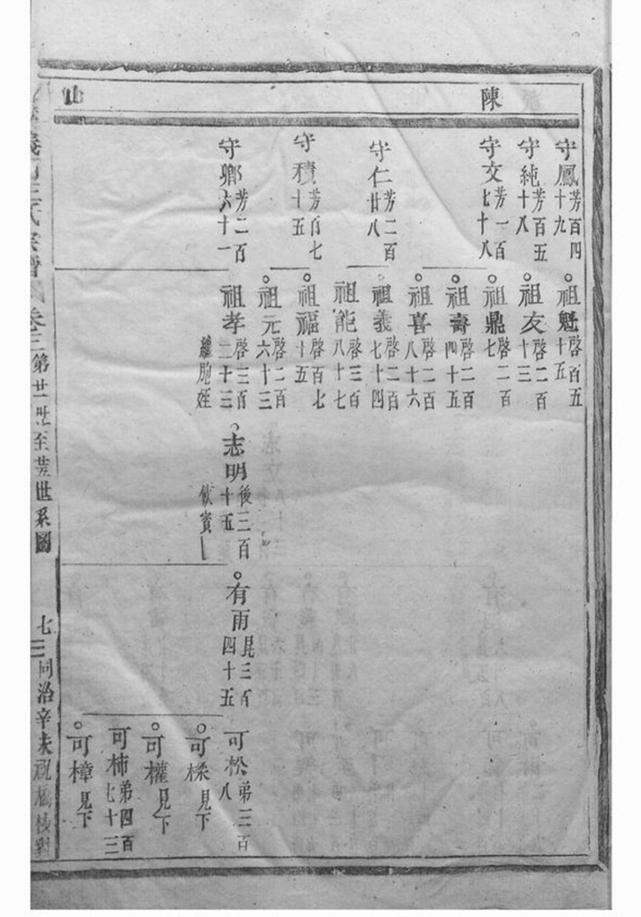 陳
守鳳 芳百四十九
守純 芳百五十八
守文 芳一百七十八
守仁 芳二百廿八
守積 芳百七十五
守鄉 芳二百六十一
祖魁 啓百五十五
祖友 啓二百十三
祖鼎 啓二百七
祖壽 啓二百四十五
祖喜 啓二百八十六
祖義 啓二百七十四
祖能 啓三百八十七
祖福 啓百七十五
祖元 啓二百六十三
祖孝 啓三百二十三 繼胞姪
志明 後三百十五
有雨 昆三百四十五
可松 弟三百八
可檪 見下
可權 見下
可柿 弟四百七十三
可樟 見下
氏宗譜 卷三 第廿一世至廿世系圖
七 同治辛未祝